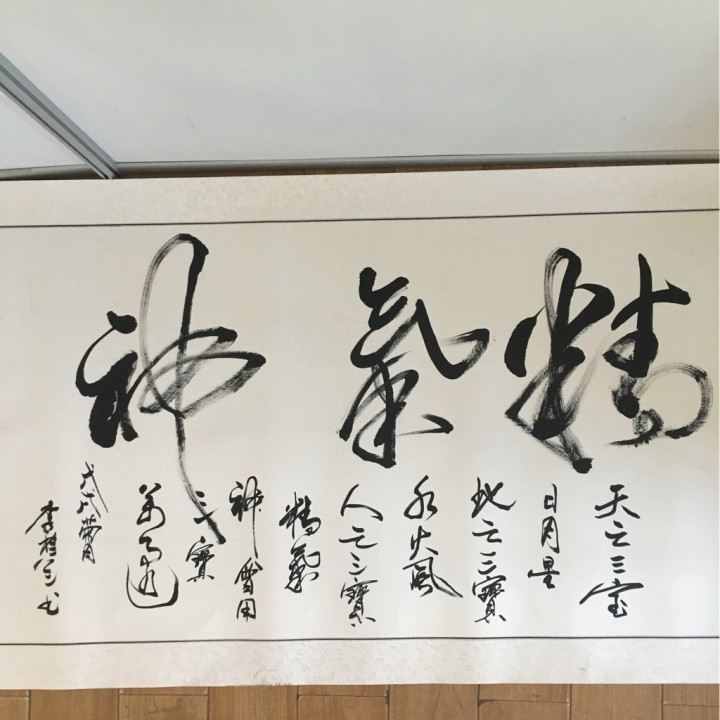 精氣神
天之三宝
日月星
地之三寶
水火風
人之三寶
精氣
神會用
三寶
萬事通
戊戌
李桂書